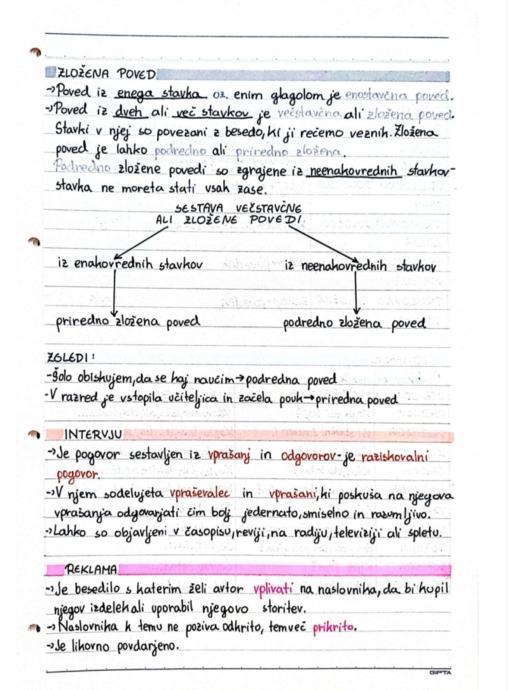 ZLOŽENA POVED
→Poved iz enega stavka oz. enim glagolom je enostavčna poved.
→Poved iz dveh ali več stavkov je večstavčna ali zložena poved.
Stavki v njej so povezani z besedo, ki ji rečemo veznik. Zložena
poved je lahko podredno ali priredno zložena.
Podredno zložene povedi so zgrajene iz neenakovrednih stavkov-
stavka ne moreta stati vsak zase.
SESTAVA VEČSTAVČNE
ALI ZLOŽENE POVEDI
iz enakovrednih stavkov iz neenakovrednih stavkov
priredno zložena poved podredno zložena poved
ZGLEDI:
-Šolo obiskujem, da se kaj naučim→podredna poved
-V razred je vstopila učiteljica in začela pouk→priredna poved
INTERVJU
→Je pogovor sestavljen iz vprašanj in odgovorov-je raziskovalni
pogovor.
→V njem sodelujeta vpraševalec in vprašani, ki poskuša na njegova
vprašanja odgovarjati čim bolj jedernato, smiselno in razumljivo.
→Lahko so objavljeni v časopisu, reviji, na radiju, televiziji ali spletu.
REKLAMA
→Je besedilo s katerim želi avtor vplivati na naslovnika, da bi kupil
njegov izdelek ali uporabil njegovo storitev.
→Naslovnika k temu ne poziva odkrito, temveč prikrito.
→Je likovno povdarjeno.
GIPTA